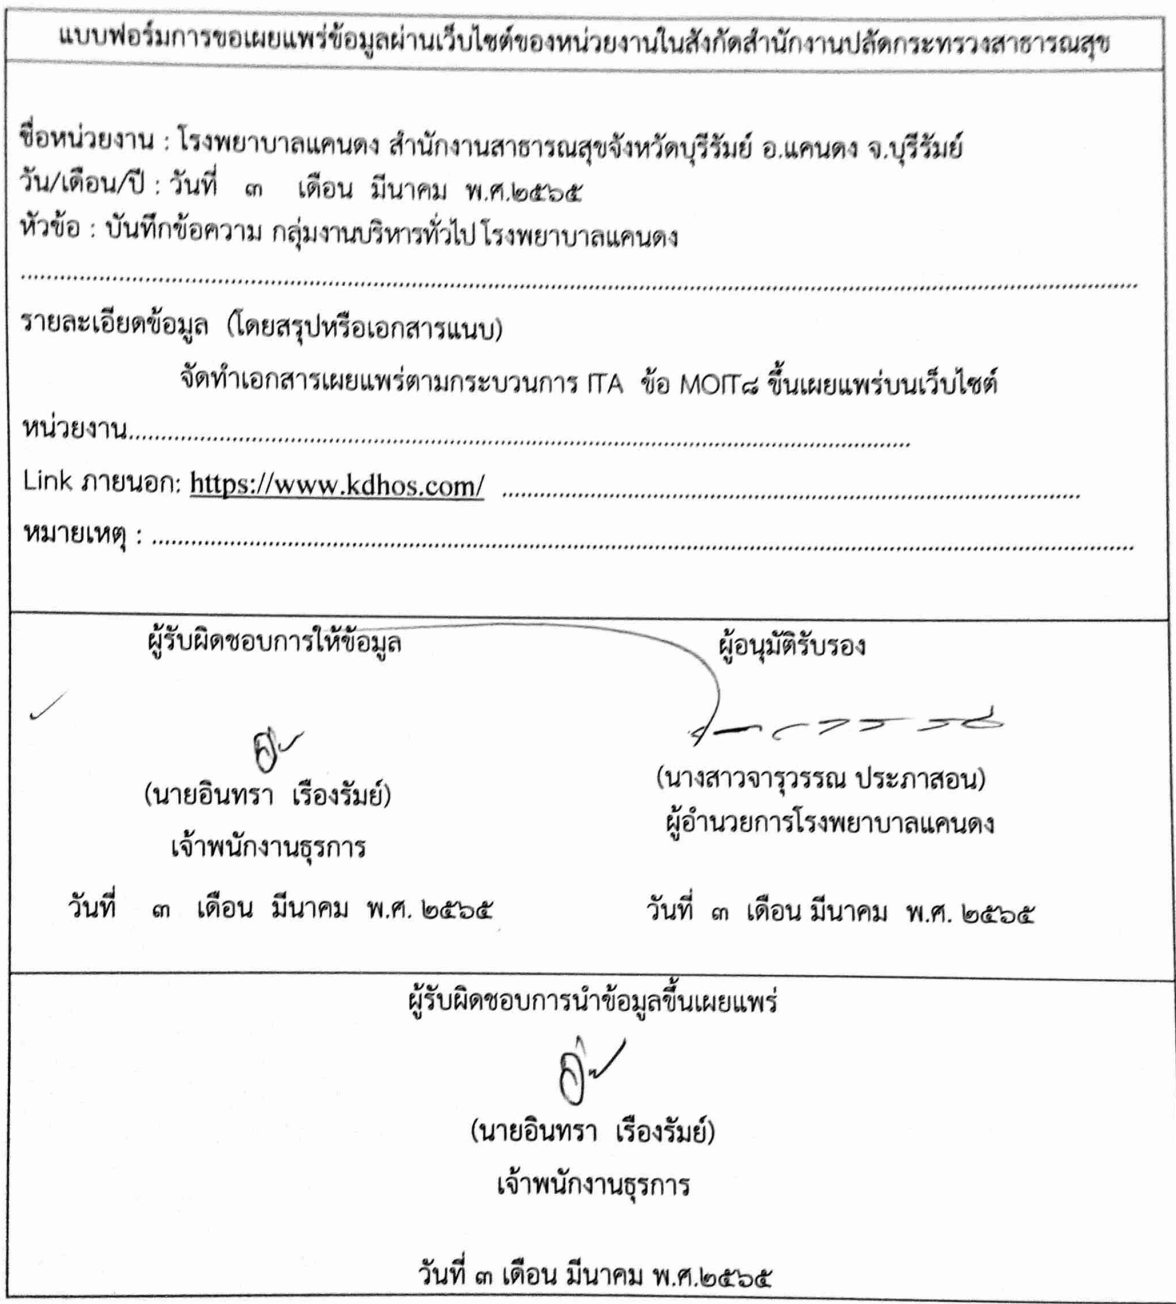 แบบฟอร์มการขอเผยแพร่ข้อมูลผ่านเว็บไซต์ของหน่วยงานในสังกัดสำนักงานปลัดกระทรวงสาธารณสุข
ชื่อหน่วยงาน : โรงพยาบาลแคนดง สำนักงานสาธารณสุขจังหวัดบุรีรัมย์ อ.แคนดง จ.บุรีรัมย์
วัน/เดือน/ปี : วันที่ ๓ เดือน มีนาคม พ.ศ.๒๕๖๕
หัวข้อ : บันทึกข้อความ กลุ่มงานบริหารทั่วไป โรงพยาบาลแคนดง
รายละเอียดข้อมูล (โดยสรุปหรือเอกสารแนบ)
จัดทำเอกสารเผยแพร่ตามกระบวนการ ITA ข้อ MOIT๘ ขึ้นเผยแพร่บนเว็บไซต์
หน่วยงาน..........
Link ภายนอก: https://www.kdhos.com/ ..........
หมายเหตุ : ..........
ผู้รับผิดชอบการให้ข้อมูล
ผู้อนุมัติรับรอง
(นายอินทรา เรืองรัมย์)
(นางสาวจารุวรรณ ประภาสอน)
เจ้าพนักงานธุรการ
ผู้อำนวยการโรงพยาบาลแคนดง
วันที่ ๓ เดือน มีนาคม พ.ศ. ๒๕๖๕
วันที่ ๓ เดือน มีนาคม พ.ศ. ๒๕๖๕
ผู้รับผิดชอบการนำข้อมูลขึ้นเผยแพร่
(นายอินทรา เรืองรัมย์)
เจ้าพนักงานธุรการ
วันที่ ๓ เดือน มีนาคม พ.ศ.๒๕๖๕